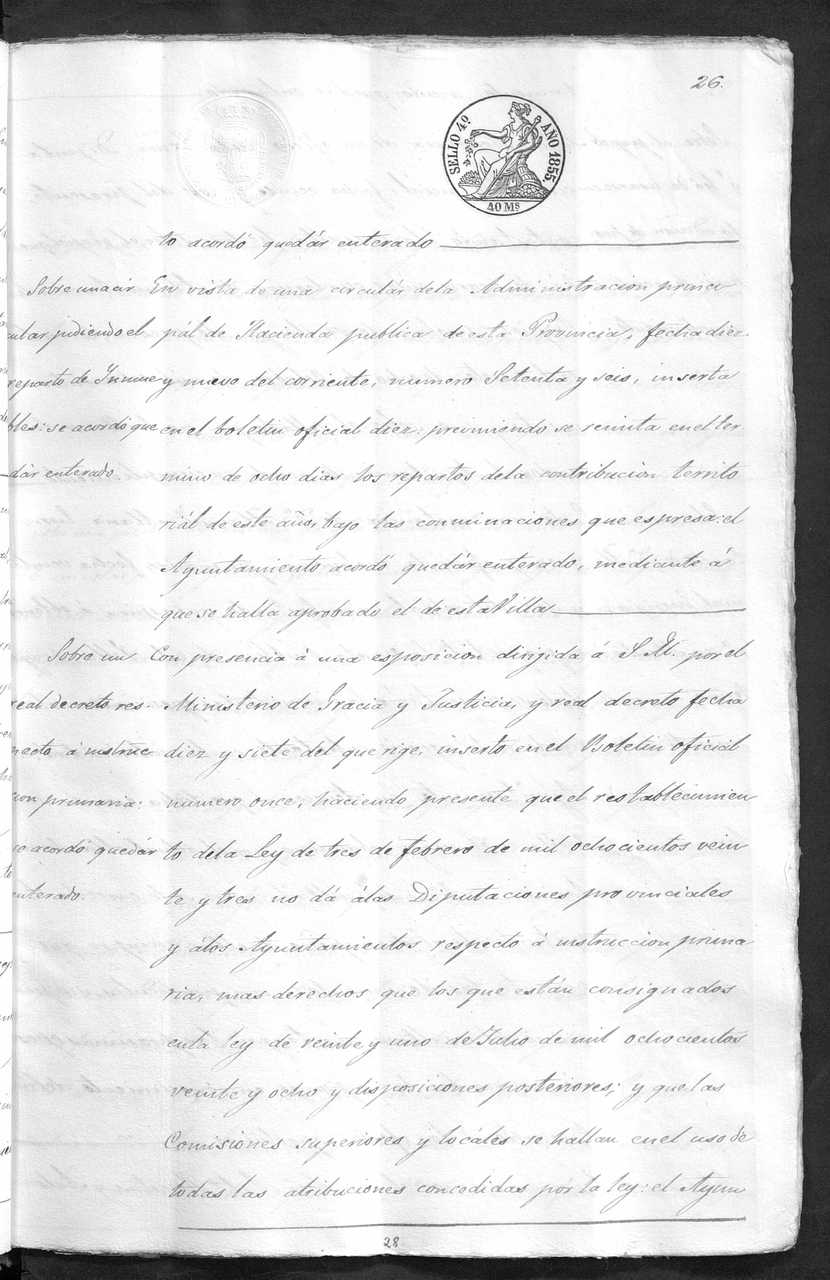 26.
SELLO 4º AÑO 1855.
40 Ms
to acordó quedár enterado
Sobre una cir
cular pidiendo el
reparto de Inmue
bles: se acordó que
dár enterado
En vista de una circulár dela Administracion princi
pal de Hacienda publica de esta Provincia, fecha diez
y nuevo del corriente, numero Setenta y seis, inserta
en el boletin oficial diez: previniendo se reunta en el ter
mino de ocho dias los repartos dela contribucion territo
riál de este año, bajo las conminaciones que espresa: el
Ayuntamiento acordó quedár enterado, mediante á
que se halla aprobado el de esta Villa
Sobre un
real decreto res-
pecto á instruc
cion primaria:
se acordó quedár
enterado.
Con presencia á una esposicion dirigida á S.M. por el
Ministerio de Gracia y Justicia, y real decreto fecha
diez y siete del que rige, inserto en el Boletin oficial
numero once, haciendo presente que el restablecimien
to dela Ley de tres de febrero de mil ochocientos vein
te y tres no dá álas Diputaciones provinciales
y álos Ayuntamientos respecto á instruccion prima
ria, mas derechos que los que están consignados
enta ley de veinte y uno de Julio de mil ochocientos
veinte y ocho y disposiciones posteriores; y que las
Comisiones superiores y locáles se hallan en el uso de
todas las atribuciones concodidas pór la ley: el Ayun
28